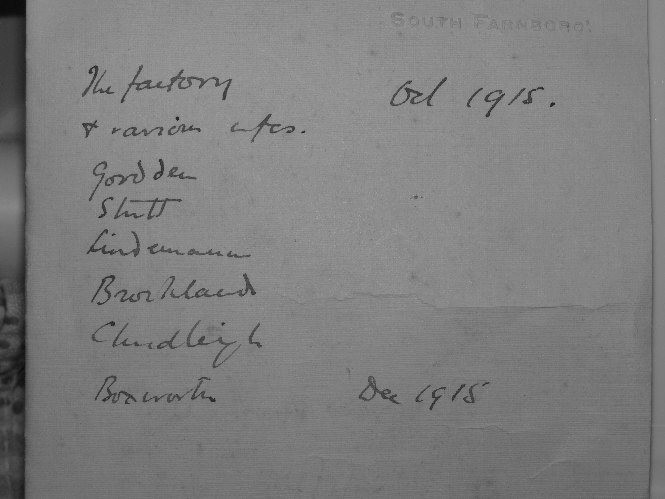 SOUTH FARNBORO'
The factory Oct 1915.
& various cfcs.
Gordden
Stutt
Lindemann
Brockland
Chudleigh
Boxworth Dec 1915